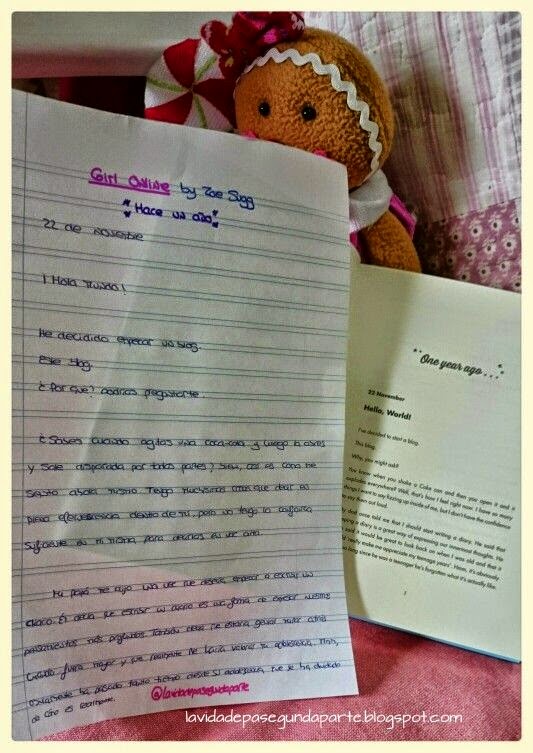 Girl Online by Zoe Sugg
"Hace un año"
22 de noviembre
¡Hola Mundo!
He decidido empezar un blog.
Este blog.
¿Por qué? podrías preguntarte.
¿Sabes cuando agitas una coca-cola y luego la abres
y sale disparada por todas partes? Bien, así es como me
siento ahora mismo. Tengo muchísimas cosas que decir en
plena efervescencia dentro de mí, pero no tengo la confianza
suficiente en mí misma para decirlas en voz alta.
Mi papá me dijo una vez que debería empezar a escribir un
diario. Él decía que escribir un diario es una forma de expresar nuestros
pensamientos más profundos. También decía que estaría genial mirar atrás
cuando fuera mayor y que realmente me haría valorar mi adolescencia. Mmm,
obviamente ha pasado tanto tiempo desde su adolescencia que se ha olvidado
de cómo es realmente.
@lavidadepasegundaparte
One year ago...
22 November
Hello, World!
I've decided to start a blog.
This blog.
Why, you might ask?
You know when you shake a Coke can and then you open it and it
explodes everywhere? Well, that's how I feel right now. I have so many
things I want to say fizzing up inside of me, but I don't have the confidence
to say them out loud.
My dad once told me that I should start writing a diary. He said that
keeping a diary is a great way of expressing our innermost thoughts. He
also said it would be great to look back on when I was old and that it
would 'really make me appreciate my teenage years'. Hmm, it's obviously
been so long since he was a teenager he's forgotten what it's actually like.
lavidadepasegundaparte.blogspot.com